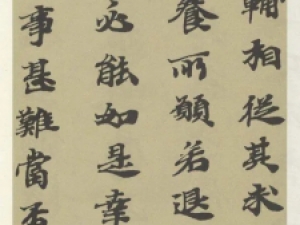 輔相從其求
餐所願若退
必能如是幸
事甚難當否